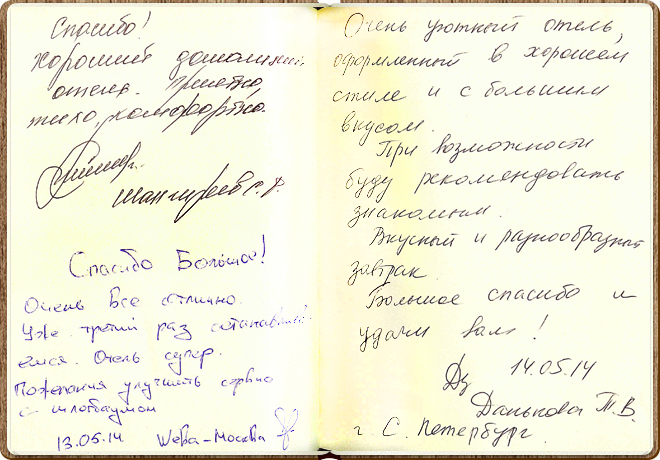 Спасибо!
Хороший домашний
отель. Приятно,
тихо, комфортно.
С. Р.
Спасибо Большое!
Очень все отлично.
Уже третий раз останавлив
емся. Отель супер.
Пожелания улучшить сервис
с шлагбаумом
13.05.14 Шева-Москва
Очень уютный отель,
оформленный в хорошем
стиле и с большим
вкусом.
При возможности
буду рекомендовать
знакомым.
Вкусный и разнообразный
завтрак.
Большое спасибо и
удачи вам!
14.05.14
Данькова Т.В.
г. С. Петербург.